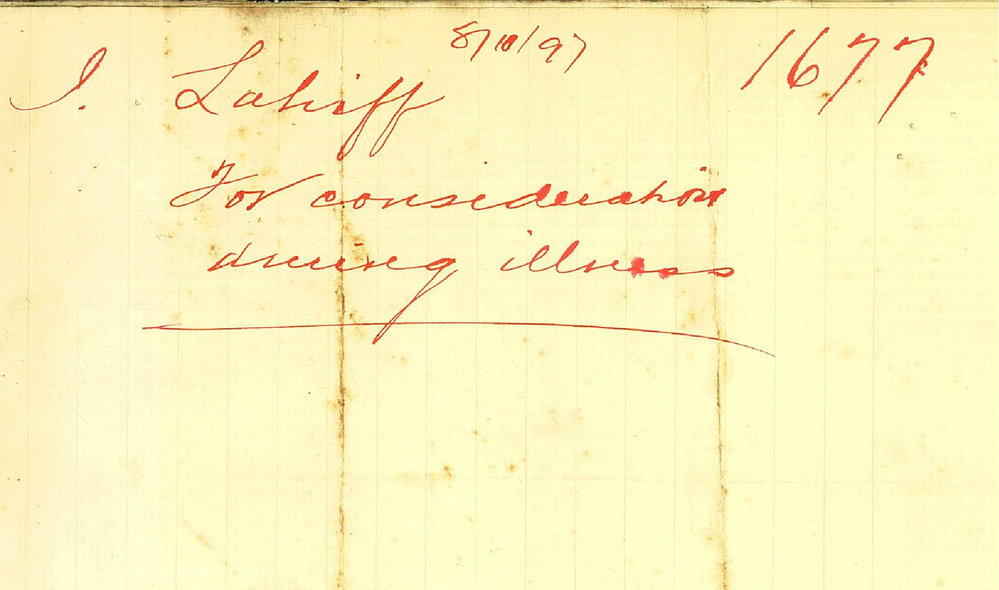 8/10/97
1677
J. Lahiff
For consideration
during illness